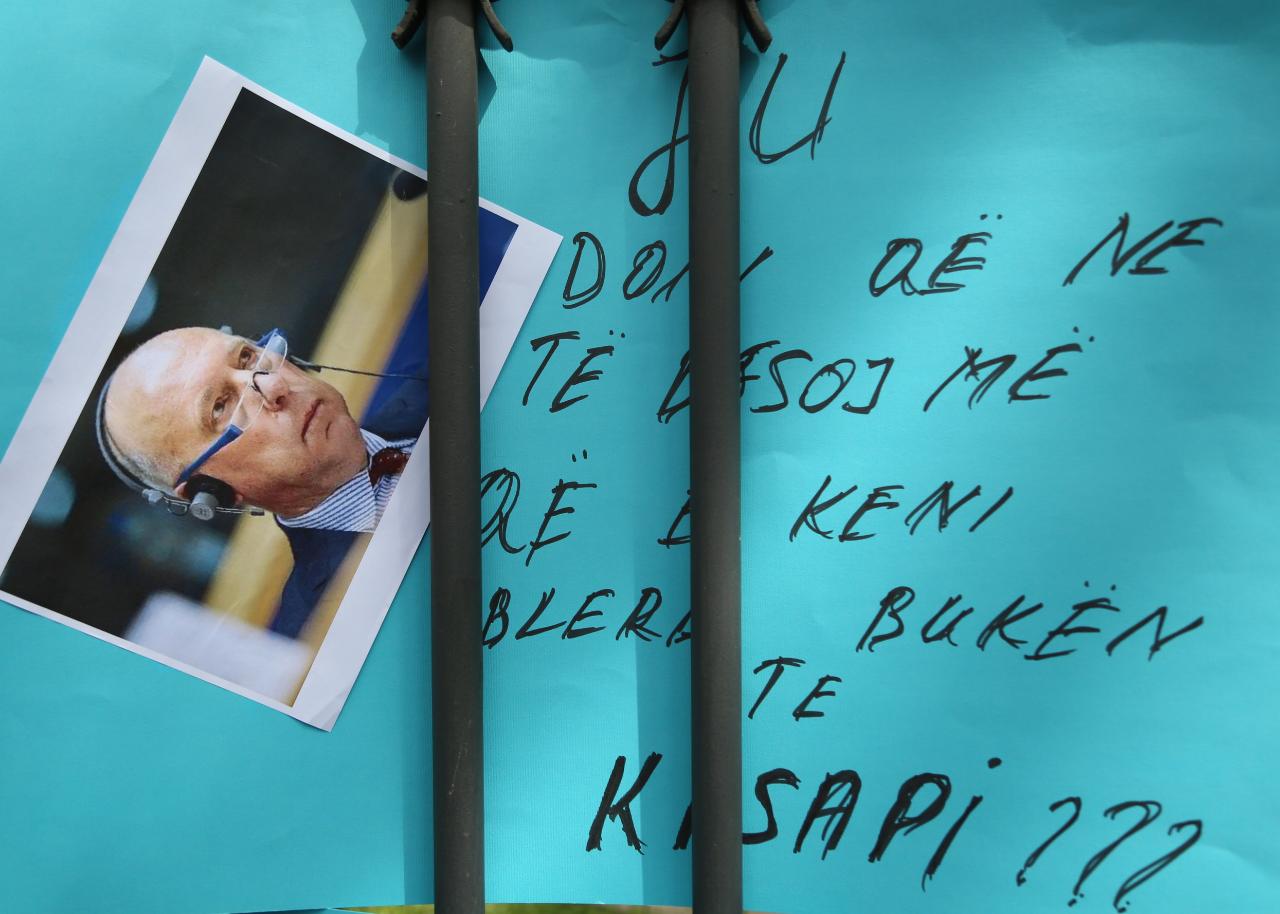 JU
DONI QË NE
TË BESOJ MË
QË E KENI
BLERË BUKËN
TE
KASAPI ???